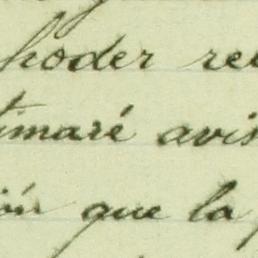 poder re
timaré avis
ión que la